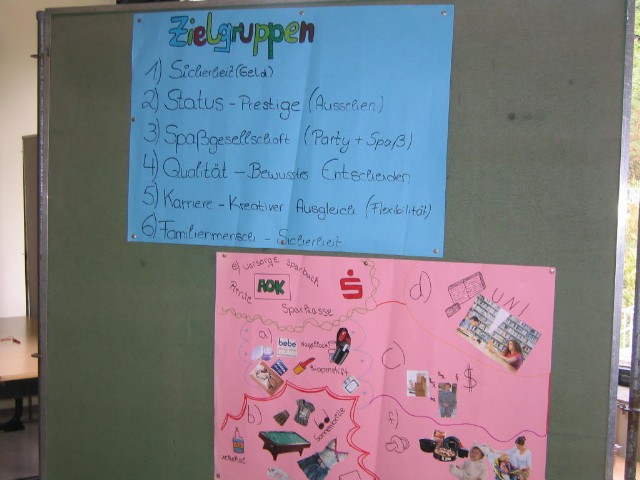 Zielgruppen
1) Sicherheit (Geld)
2) Status - Prestige (Aussehen)
3) Spaßgesellschaft (Party + Spaß)
4) Qualität - Bewusstes Entscheiden
5) Karriere - Kreativer Ausgleich (Flexibilität)
6) Familienmensch - Sicherheit
e) Vorsorge Sparbuch
Rente
AOK
S
Sparkasse
d)
UNI
a)
bebe
Nagellack
Lippenstift
c)
$
b)
Sonnenbrille
f)